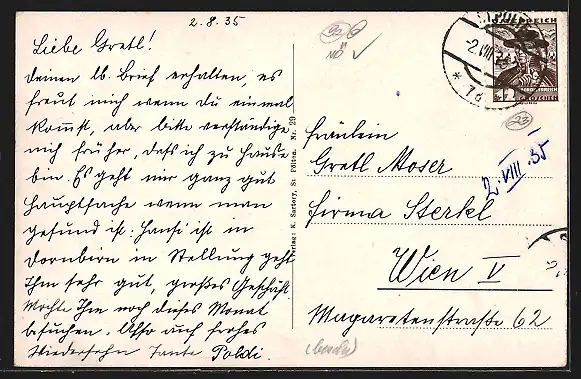 2.8.35
Liebe Gretl!
Deinen lb. Brief erhalten, es
freut mich wenn du einmal
kommst, aber bitte verständige
mich früher, dass ich zu Hause
bin. Es geht mir ganz gut
Hauptsache wenn man
gesund ist. Hansi ist in
Dornbirn in Stellung geht
Ihm sehr gut, großes Geschäft
Möchte Ihm noch dieses Monat
besuchen. Also auf frohes
Wiedersehn Tante Poldi.
Verlag: K. Sartory, St. Pölten. Nr. 29
NÖ
ÖSTERREICH
-2.VIII
* 7d
12
23
2.VIII.35
Fräulein
Gretl Moser
Firma Sterkl
Wien V
Magaretenstraße 62